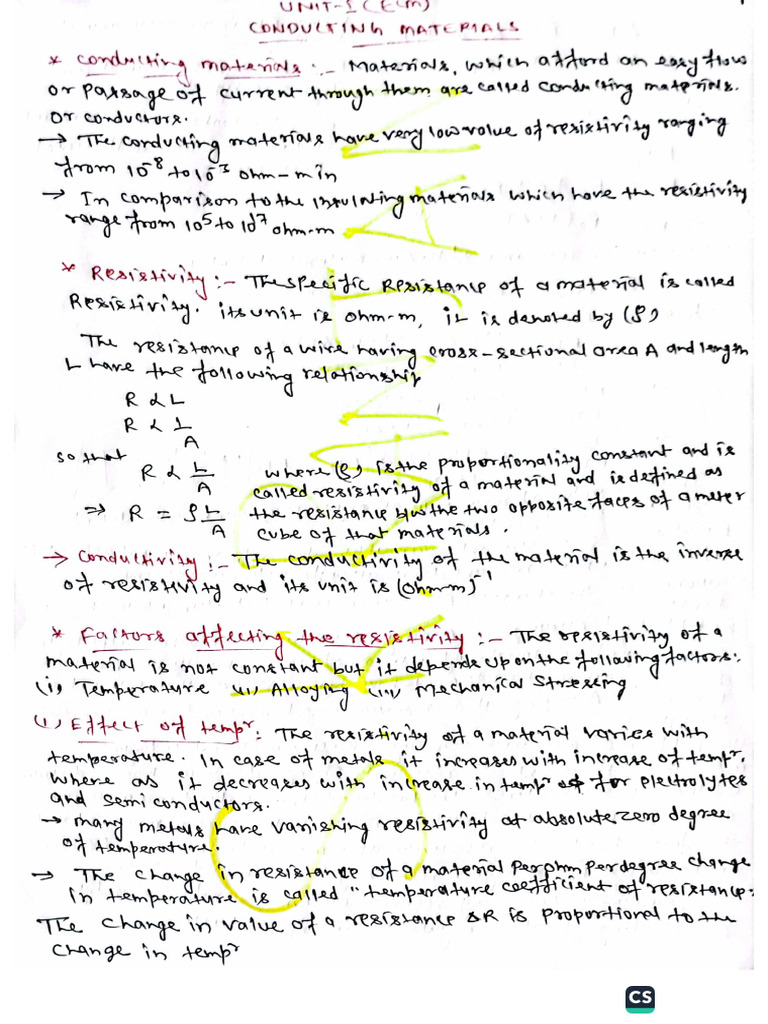 UNIT-I (E(M)
CONDUCTING MATERIALS
* Conducting materials :- Materials, which afford an easy flow
or passage of current through them are called conducting materials.
or conductors.
→ The conducting materials have very low value of resistivity ranging
from 10⁻⁸ to 10⁻³ ohm-m in
→ In comparison to the insulating materials which have the resistivity
range from 10⁵ to 10¹⁷ ohm-m
* Resistivity :- The specific Resistance of a material is called
Resistivity. its unit is ohm-m, it is denoted by (ρ)
The resistance of a wire having cross-sectional area A and length
L have the following relationship
R ∝ L
R ∝ 1/A
so that
R ∝ L/A where (ρ) is the proportionality constant and is
called resistivity of a material and is defined as
⇒ R = ρ L/A the resistance b/w the two opposite faces of a meter
cube of that materials.
→ Conductivity :- The conductivity of the material is the inverse
of resistivity and its unit is (ohm-m)⁻¹
* Factors affecting the resistivity :- The resistivity of a
material is not constant but it depends upon the following factors:
(i) Temperature (ii) Alloying (iii) Mechanical Stressing
(i) Effect of tempr: The resistivity of a material varies with
temperature. In case of metals it increases with increase of tempr.
where as it decreases with increase in tempr for electrolytes
and semiconductors.
→ many metals have vanishing resistivity at absolute zero degree
of temperature.
→ The change in resistance of a material per ohm per degree change
in temperature is called "temperature coefficient of resistance:
The change in value of a resistance δR is proportional to the
change in tempr
CS